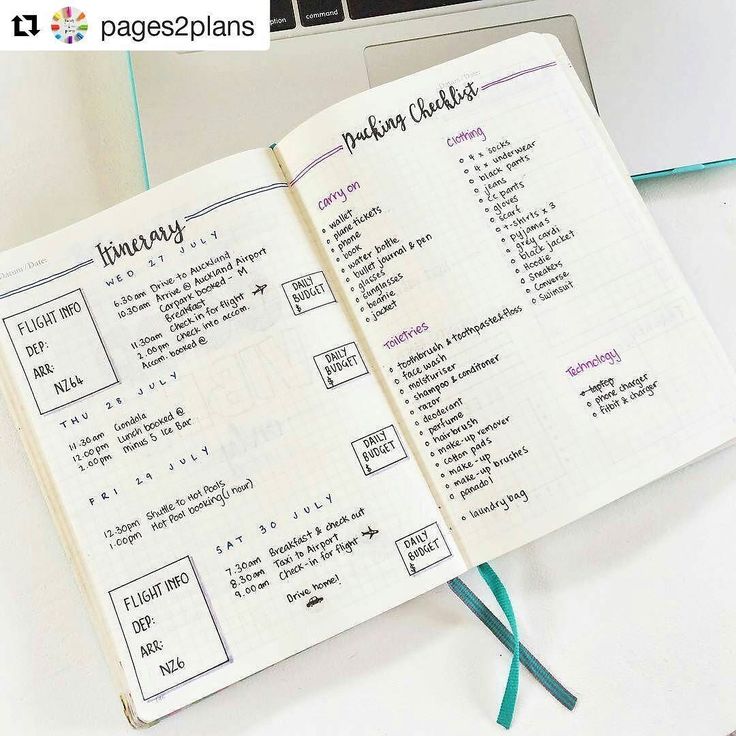 pages2plans
option
command
Datum/Date:
Itinerary
WED 27 JULY
FLIGHT INFO
DEP:
ARR:
NZ64
6.30am Drive to Auckland
10.30am Arrive @ Auckland Airport
Carpark booked - M
Breakfast
11.30am Check in for flight
2.00pm Check into accom.
Accom. booked @
DAILY
BUDGET
$
THU 28 JULY
11.30am Gondola
12.00pm Lunch booked @
2.00pm minus 5 Ice Bar
DAILY
BUDGET
$
FRI 29 JULY
12.30pm Shuttle to Hot Pools
1.00pm Hot Pool booking (1 hour)
DAILY
BUDGET
$
SAT 30 JULY
7.30am Breakfast & check out
8.30am Taxi to Airport
9.00am Check-in for flight
Drive home!
DAILY
BUDGET
$
FLIGHT INFO
DEP:
ARR:
NZ6
Datum/Date:
Packing Checklist
carry on
wallet
plane tickets
phone
book
water bottle
bullet journal & pen
glasses
sunglasses
beanie
jacket
Toiletries
toothbrush & toothpaste & floss
face wash
moisturiser
shampoo & conditoner
razor
deoderant
perfume
hairbrush
make-up remover
cotton pads
make-up
make-up brushes
panadol
laundry bag
Clothing
4 x socks
4 x underwear
black pants
jeans
cc pants
gloves
scarf
t-shirts x 3
pyjamas
grey cardi
black jacket
Hoodie
Sneakers
Converse
swimsuit
Technology
laptop
phone charger
fitbit & charger